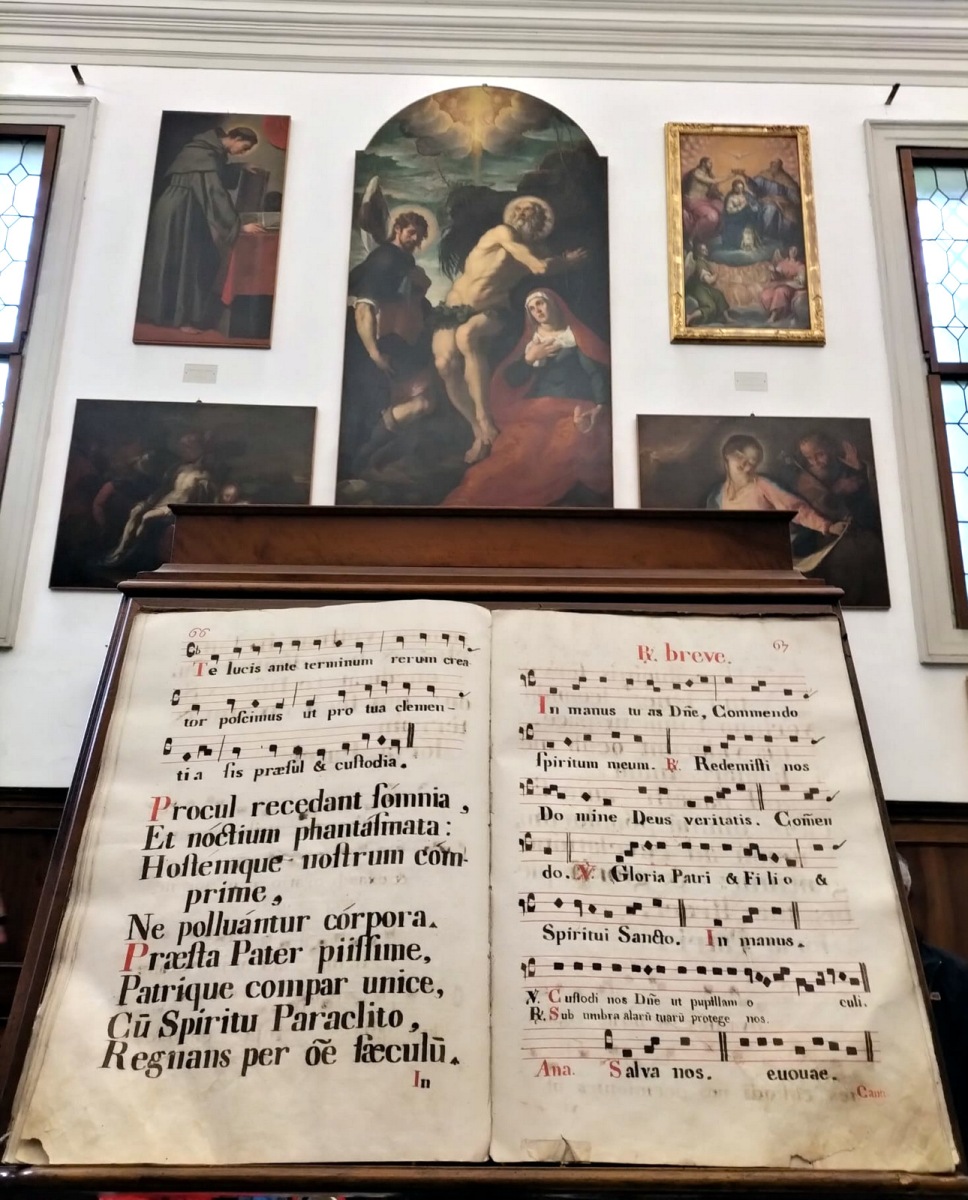 66
Te lucis ante terminum rerum crea-
tor poſcimus ut pro tua clemen-
ti a ſis præſul & cuſtodia.
Procul recędant ſómnia,
Et nóctium phantáſmata:
Hoſtemque noſtrum cóm-
prime,
Ne polluántur córpora.
Præſta Pater piiſſime,
Patrique compar unice,
Cū Spíritu Paraclito,
Regnans per oē ſæculū.
In
67
℟. breve.
In manus tu as Dñe, Commendo
ſpiritum meum. ℟. Redemiſti nos
Do mine Deus veritatis. Com̄en
do. ℣. Gloria Patri & Fi li o &
Spiritui Sancto. In manus.
℣. Cuſtodi nos Dñe ut pupillam o culi.
℟. Sub umbra alarū tuarū protege nos.
Ana. Salva nos. euouae.
Cant